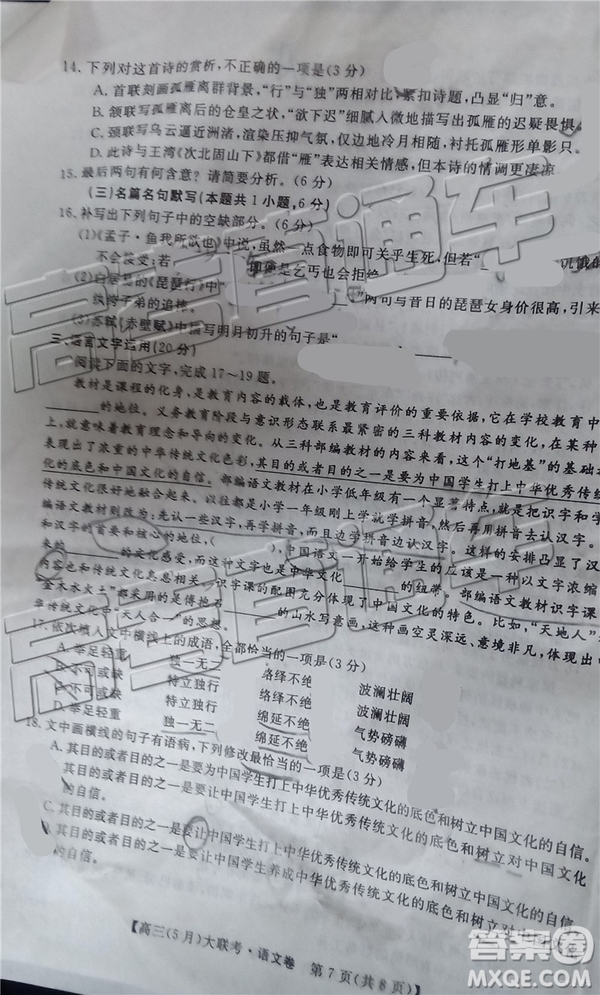 14. 下列对这首诗的赏析,不正确的一项是(3分)
A. 首联刻画孤雁离群背景,“行”与“独”两相对比,紧扣诗题,凸显“归”意。
B. 颔联写孤雁的仓皇之状,“欲下迟”细腻入微地描写出孤雁的迟疑畏惧。
C. 颈联写乌云逼近洲渚,渲染压抑气氛,仅边地冷月随,衬托孤雁形单影只。
D. 此诗与王湾《次北固山下》都借“雁”表达相关情感,但本诗的情调更凄凉
15. 最后两句有何含意?请简要分析。(6分)
(三)名篇名句默写(本题共1小题,6分)
16. 补写出下列句子中的空缺部分。(6分)
(1)《孟子·鱼我所欲也》中说,虽然一点食物即可关乎生死,但若“
不会接受;若 即便是乞丐也会拒绝
(2)白居易的《琵琶行》中“ ”两句与昔日的琵琶女身价很高,引来
纨绔子弟的追捧。
(3)苏轼《赤壁赋》中描写明月初升的句子是“
三、语言文字运用(20分)
阅读下面的文字,完成17~19题。
教材是课程的化身,是教育内容的载体,也是教育评价的重要依据,它在学校教育中
的地位。义务教育阶段与意识形态联系最紧密的三科教材内容的变化,在某种
上,就意味着教育理念和导向的变化。从三科部编教材的内容来看,这个“打地基”的基础
表现出了浓重的中华传统文化色彩,其目的或者目的之一是要为中国学生打上中华优秀传统
化的底色和中国文化的自信。部编语文教材在小学低年级有一个显著特点,就是把识字和学
传统文化很好地融合起来。以往是小学一年级刚上学就学拼音,然后再用拼音去认汉字。
编语文教材则改为:先认一些汉字,再学拼音,而且边学拼音边认汉字。这样的安排凸显了汉
和汉字的首要和核心的地位,( ),中国语文一开始给学生的应该是一种以文字浓缩
来的 的文化感受,而这种文字与中华文化 的纽带。部编语文教材识字课
内容也和传统文化息息相关,识字课的配图充分体现了中国文化的特色。比如,“天地人”、
金木水火土”都采用的是傅抱石 的山水写意画,这种画空灵深远、意境非凡,体现出
华传统文化“天人合一”的思想。
17. 依次填入文中横线上的成语,全都恰当的一项是(3分)
A. 举足轻重 独一无二 络绎不绝 波澜壮阔
B. 不可或缺 特立独行 络绎不绝 波澜壮阔
C. 不可或缺 特立独行 绵延不绝 气势磅礴
D. 举足轻重 独一无二 绵延不绝 气势磅礴
18. 文中画横线的句子有语病,下列修改最恰当的一项是(3分)
A. 其目的或者目的之一是要为中国学生打上中华优秀传统文化的底色和树立中国文化的自信。
其目的或者目的之一是要为中国学生打上中华优秀传统文化的底色和树立对中国文化
的自信。
C. 其目的或者目的之一是要让中国学生打上中华优秀传统文化的底色和树立中国文化的自信。
其目的或者目的之一是要让中国学生养成中华优秀传统文化的底色和树立对中国文化
的自信。
【高三(5月)大联考·语文卷 第7页(共8页)】
高考直通车